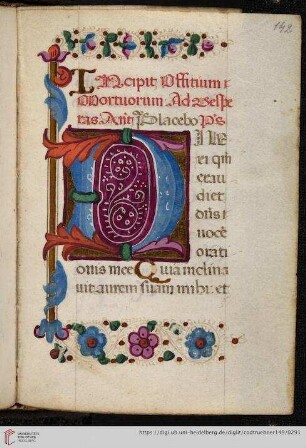 142
Incipit Offitium
Mortuorum Ad Vespe
ras. Placebo Ps.
ILE
xi qm̄
exau
diet
dñs
vocē
orati
onis mee Quia inclina
vit aurem suam mihi: et
UNIVERSITÄTS-
BIBLIOTHEK
HEIDELBERG
https://digi.ub.uni-heidelberg.de/diglit/codtruebner149/0291